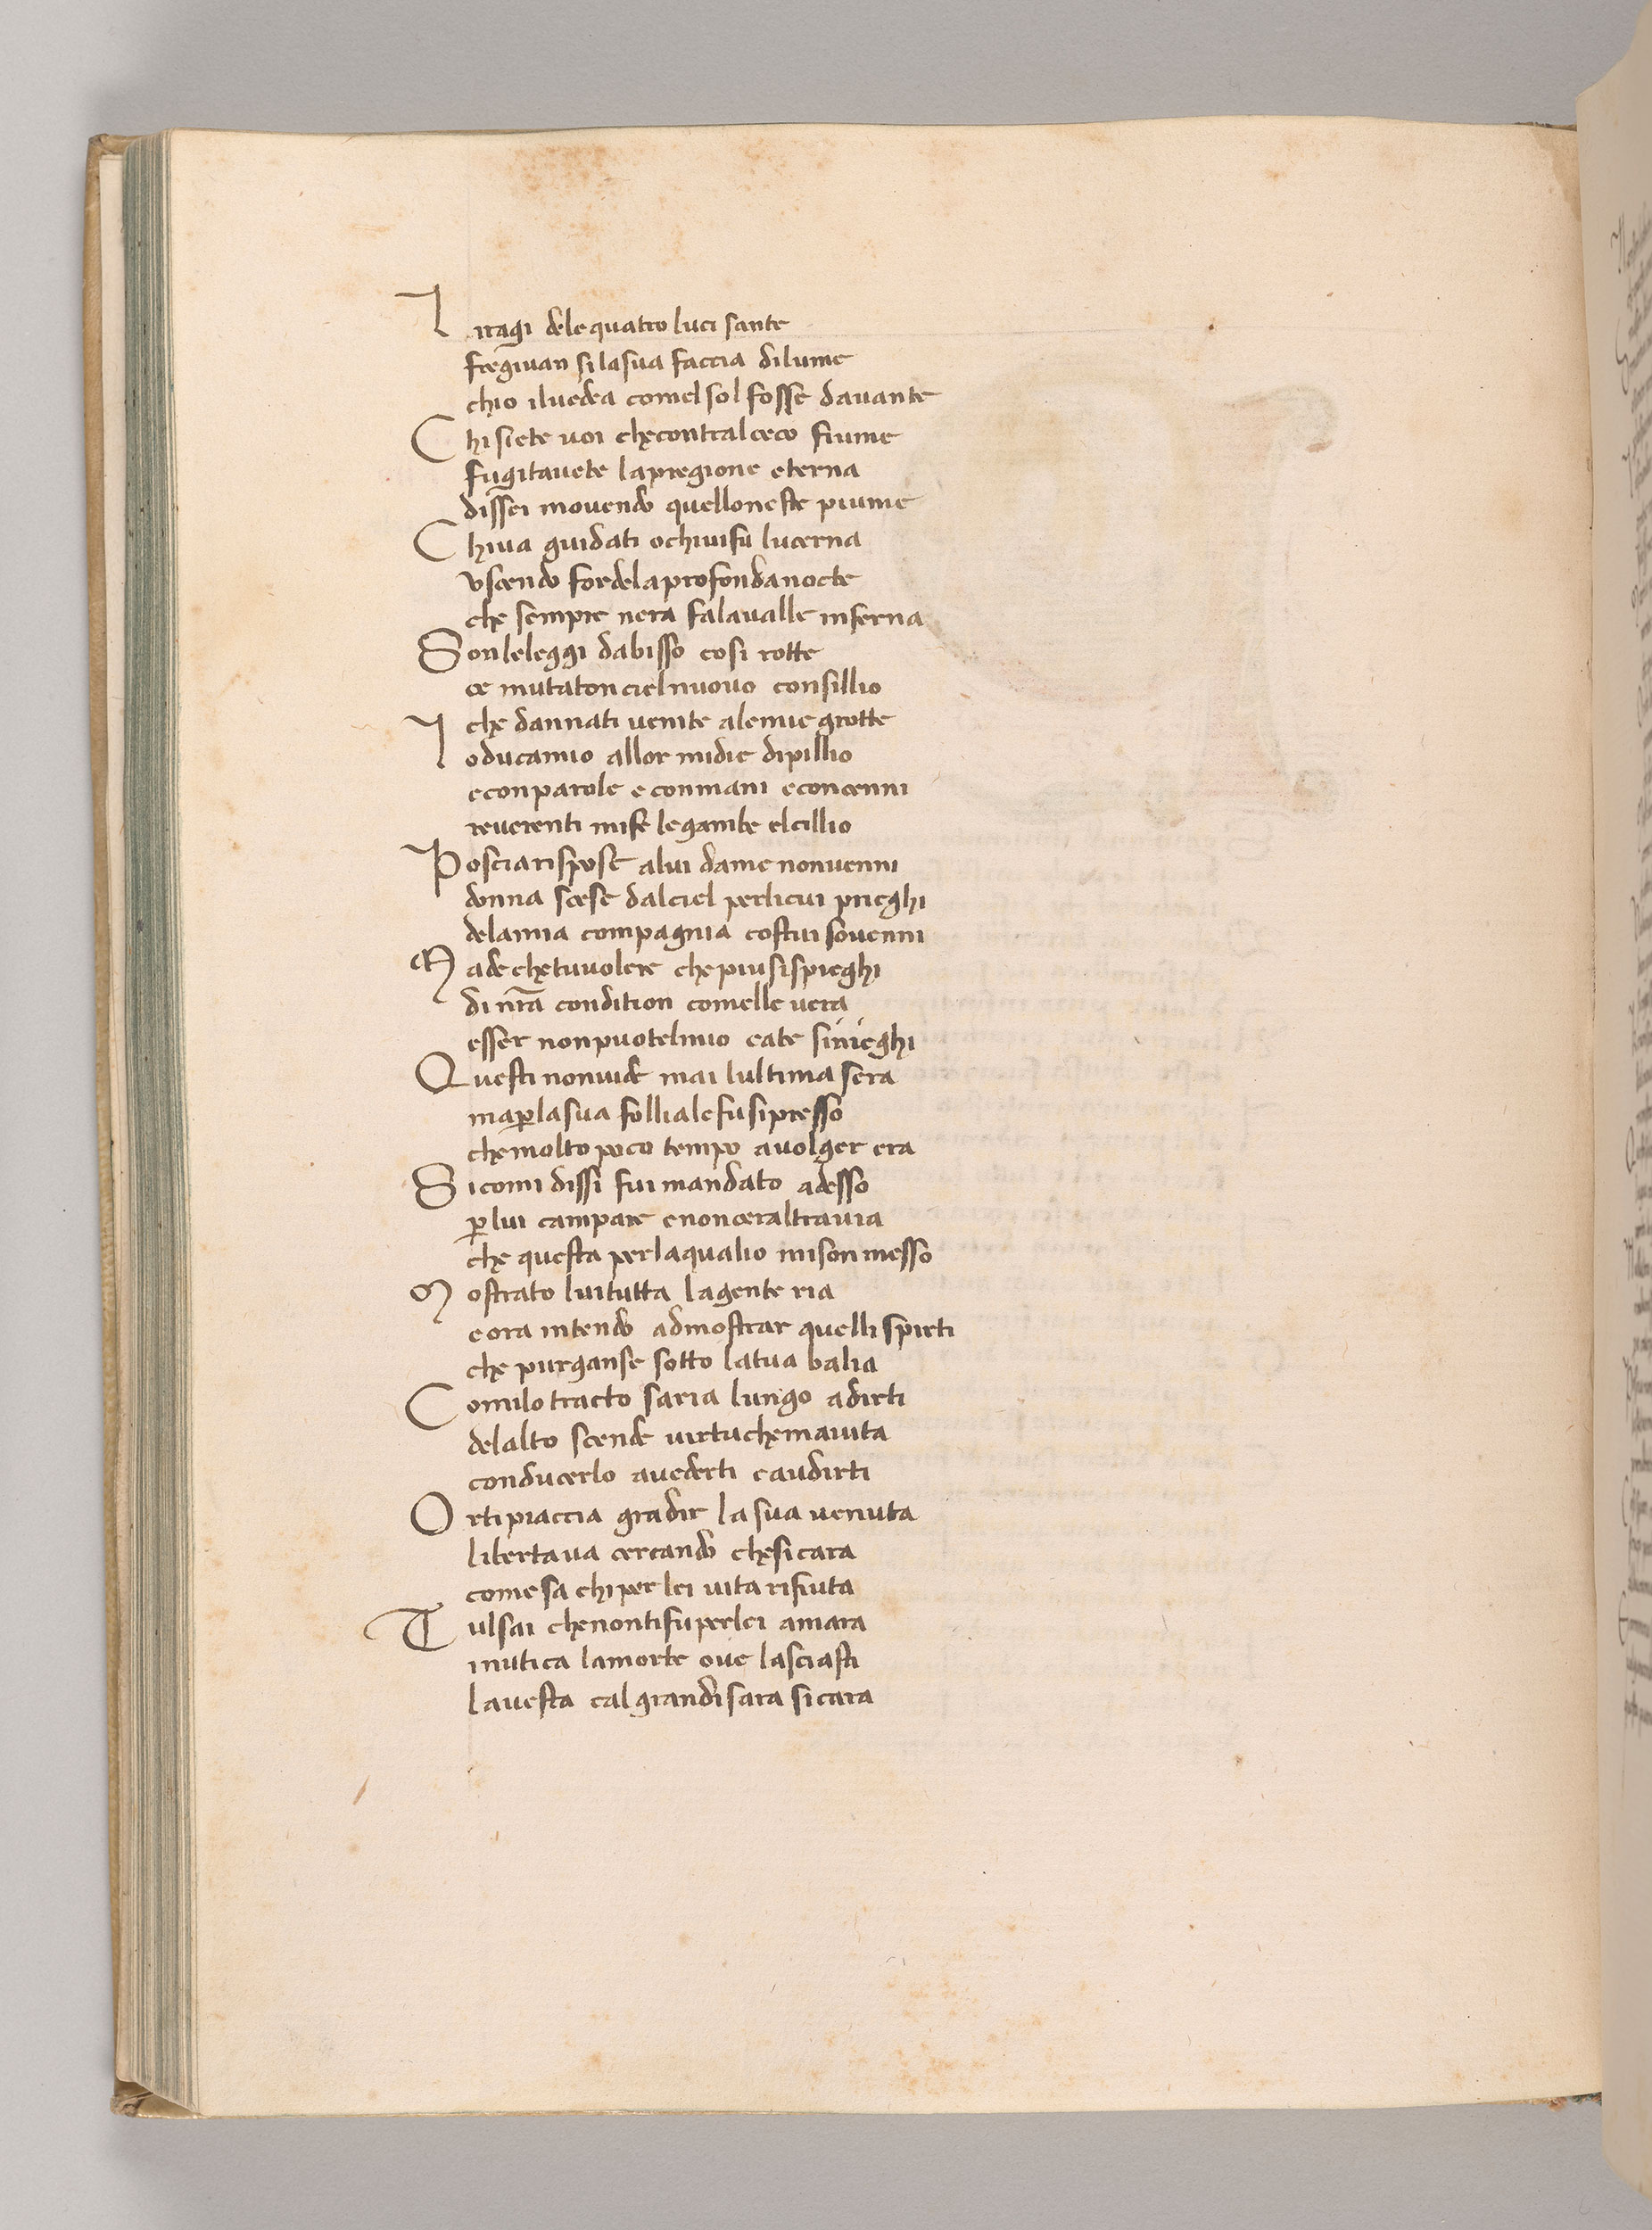 I iragi dele quatro luci sante
fregiuan si la sua faccia dilume
chio iluedea comel sol fosse dauante
C hi siete uoi che contral ceco fiume
fugitauete la pregione eterna
dissei mouendo quelloneste piume
C hiua guidati ochiuifu lucerna
uscendo for dela profonda nocte
che sempre nera fa laualle inferna
S on le leggi dabisso cosi rotte
oe mutaton ciel nuouo consillio
che dannati uenite alemie grotte
I oducamio allor midie dipillio
econ parole e conmani econcenni
reuerenti mife legambe elcillio
P oscia rispose alui dame nonuenni
donna scese dalciel per licui prieghi
delamia compagnia costui souenni
M ade chetuuolere che piusispieghi
di nr̃a condition comelle uera
esser nonpuotelmio eate sinieghi
Q uesti nonuide mai lultima sera
ma ꝑlasua folliale fu si presso
che molto poco tempo auolger era
S icomi dissi fui mandato adesso
ꝑ lui campare enonceraltrauia
che questa perlaqualio mison messo
M ostrato luitutta lagente ria
e ora intendo admostrar quelli spirti
che purganse sotto latua balia
C omilo tracto saria lungo adirti
delalto scende uirtuchemaiuta
conducerlo auederti eaudirti
O rtipiaccia gradir la sua uenuta
libertaua cercando chesicara
comesa chiper lei uita rifiuta
T ulsai chenontifuperlei amara
inutica lamorte oue lasciasti
lauesta calgrandisara sicara